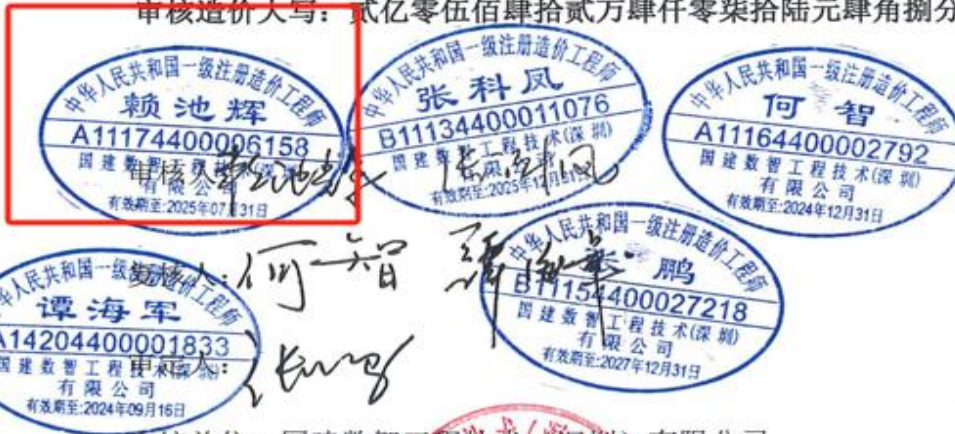 审核造价大写：贰亿零伍佰肆拾贰万肆仟零柒拾陆元肆角捌分
中华人民共和国一级注册造价工程师
赖池辉
A11174400006158
国建数智工程技术(深圳)
有限公司
有效期至:2025年07月31日
中华人民共和国一级注册造价工程师
张科凤
B11134400011076
国建数智工程技术(深圳)
有限公司
有效期至:2025年12月31日
中华人民共和国一级注册造价工程师
何智
A11164400002792
国建数智工程技术(深圳)
有限公司
有效期至:2024年12月31日
审核人：赖池辉 张科凤
复核人：何智 谭海军
中华人民共和国一级注册造价工程师
谭海军
A14204400001833
国建数智工程技术(深圳)
有限公司
有效期至:2024年09月16日
中华人民共和国一级注册造价工程师
鹏
B11154400027218
国建数智工程技术(深圳)
有限公司
有效期至:2027年12月31日
审定人：
国建数智工程技术(深圳)有限公司